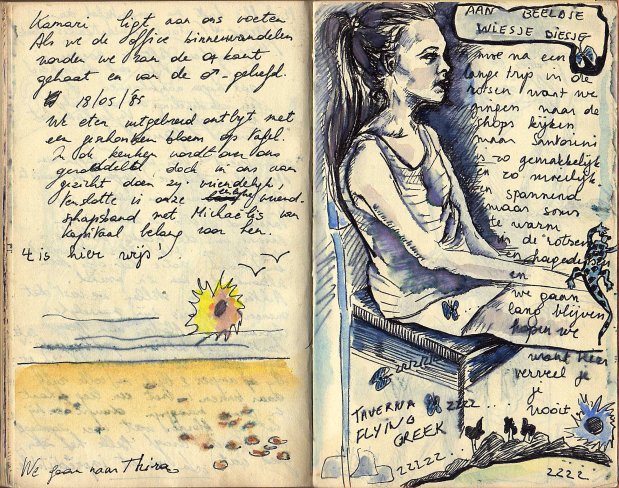 Kamari ligt aan ons voeten
Als we de office binnenwandelen
worden we van de ♀ kant
gehaat en van de ♂-geliefd.
18/05/'85
We eten uitgebreid ontbijt met
een geschonken bloem op tafel
In de keuken wordt over ons
geroddeld doch in ons aan
gezicht doen zij vriendelijk,
tenslotte is onze vriend-
schapsband met Michaëlis van
kapitaal belang voor hen.
't is hier wijs!
We gaan naar Thira
AAN BEELDJE
WIESJE DIESJE
moe na een
lange trip in de
rotsen want we
gingen naar de
shops kijken
maar Santorini
is zo gemakkelijk
en zo moeilijk
en spannend
maar soms
te warm
in de rotsen
en
we gaan
lang blijven
hopen we
want hier
verveel je
je
nooit
zzzzz
TAVERNA zzzz...
FLYING
GREEK
zzzzz...
zzzz